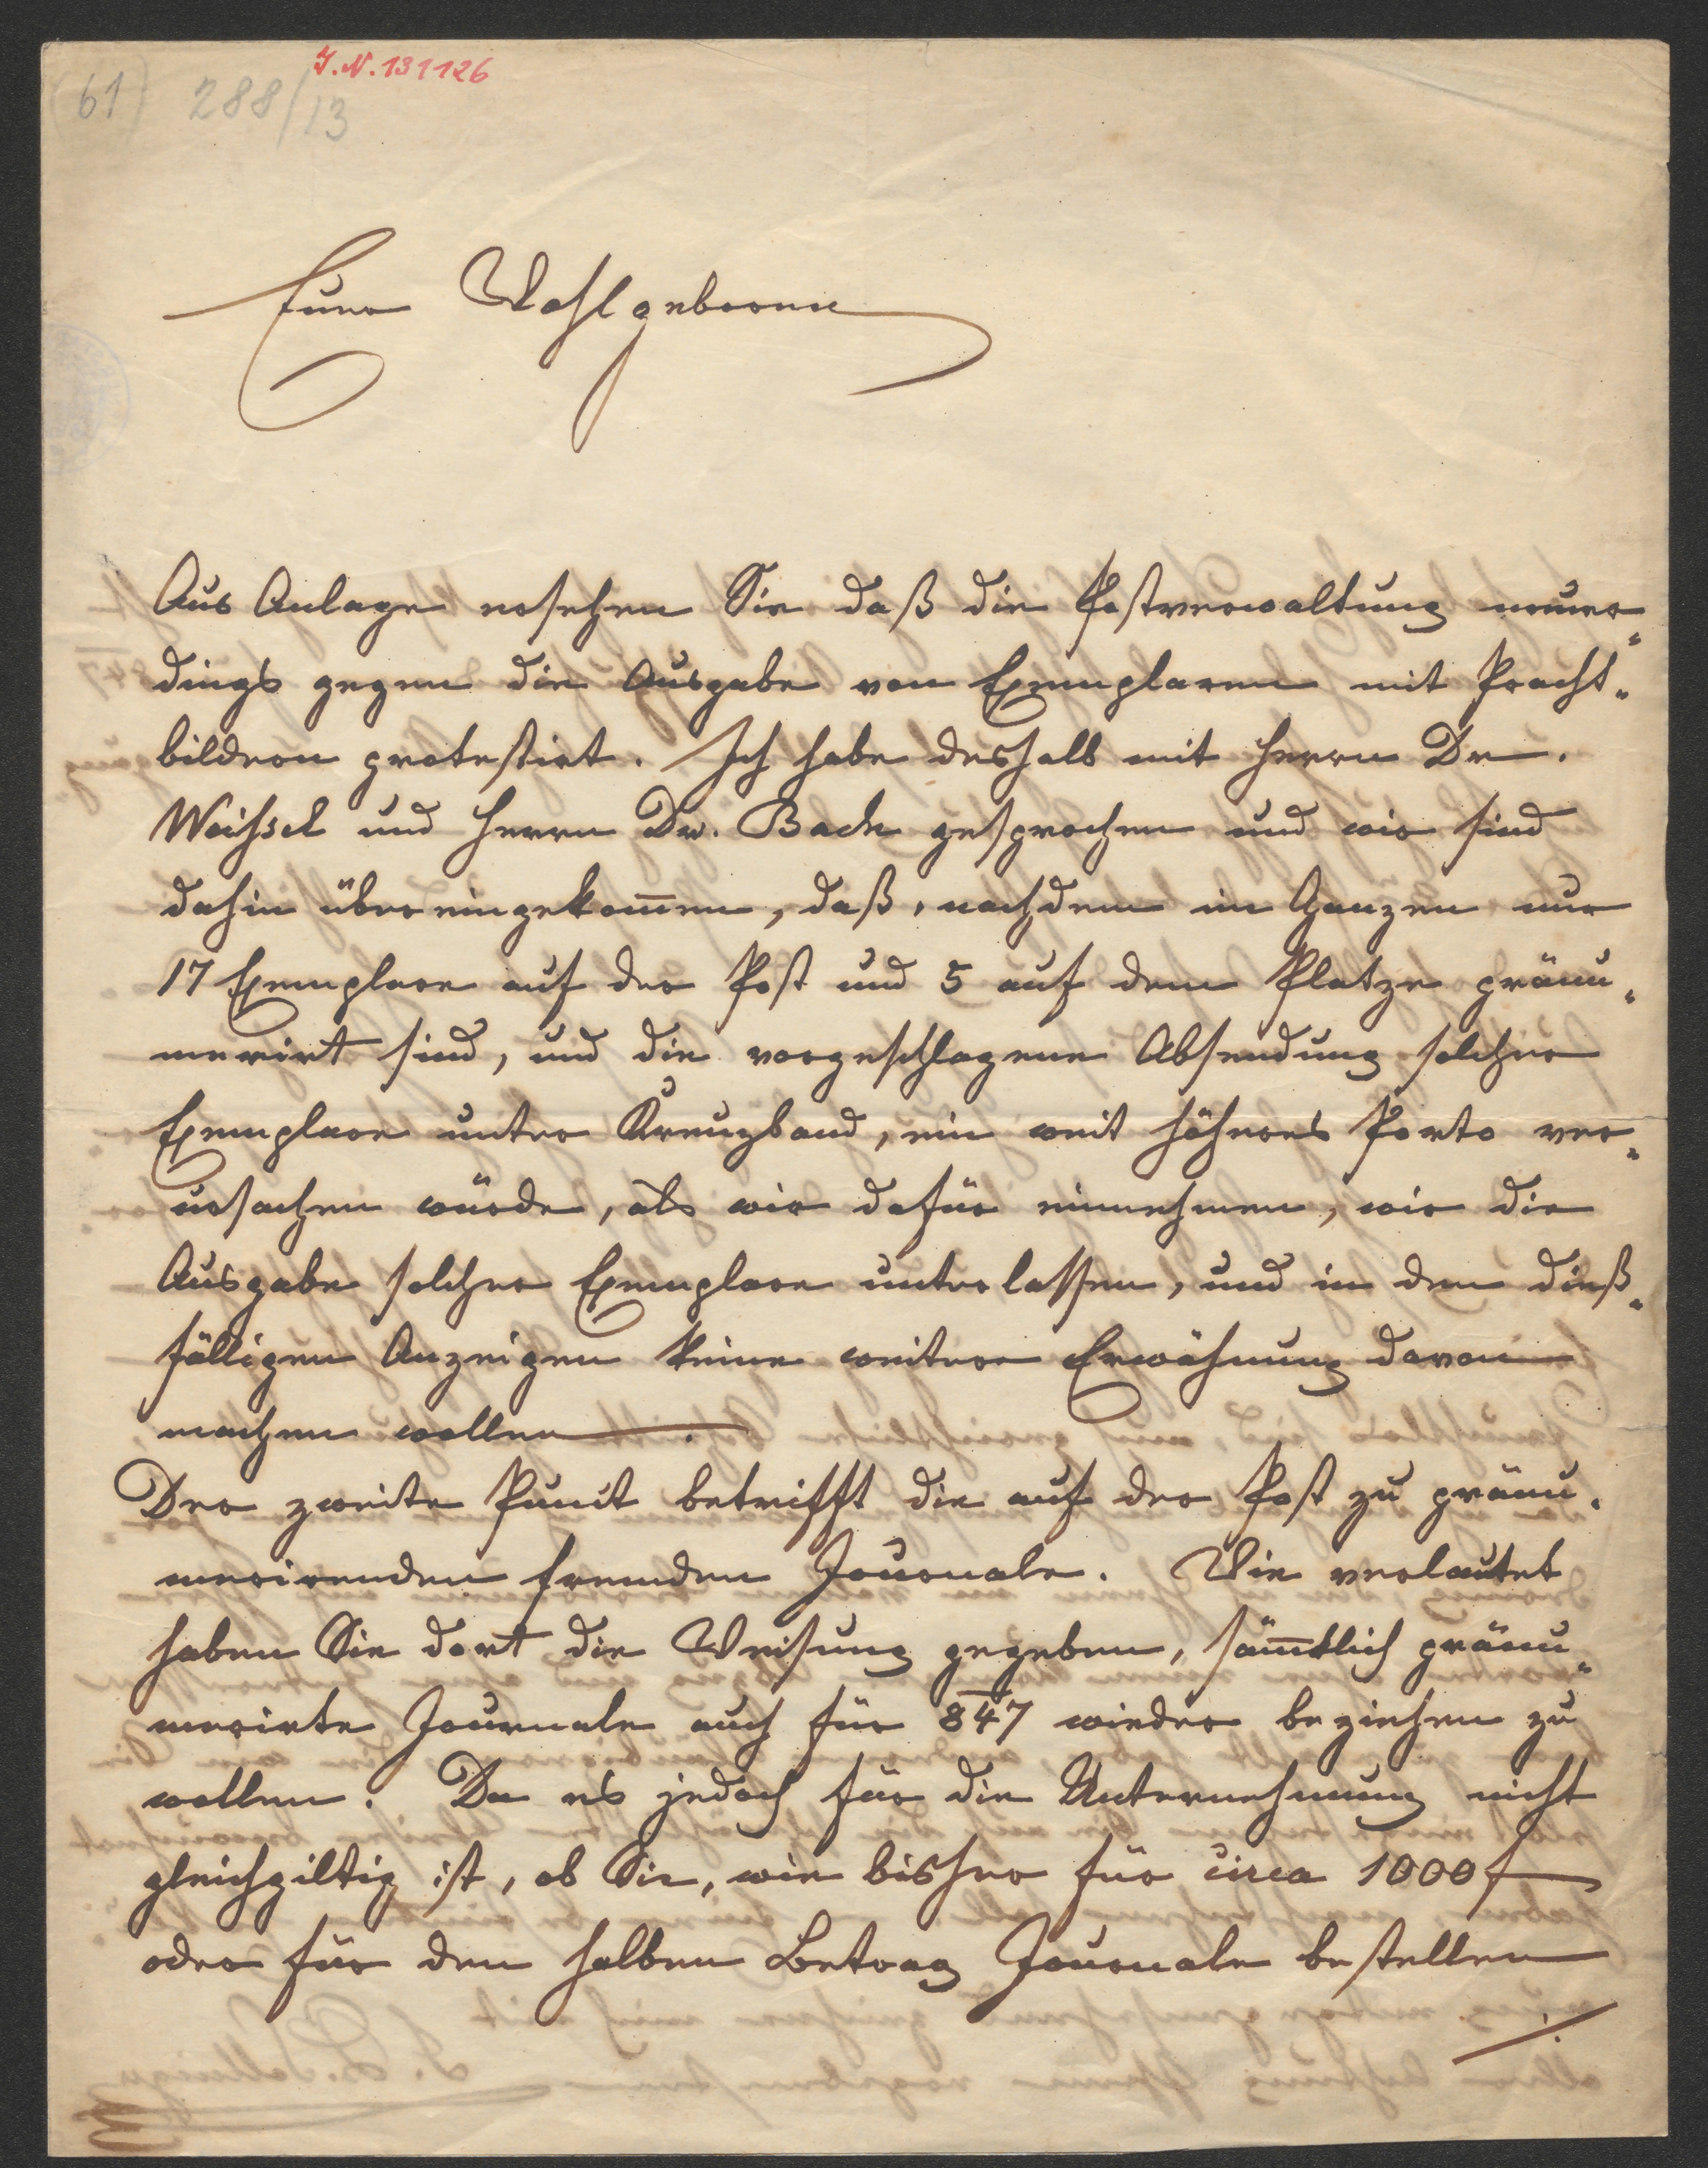 J. N. 131126
(61) 288/13
Euer Wohlgeboren
Aus Anlage ersehen Sie daß die Postverwaltung neuer-
dings gegen die Ausgabe von Exemplaren mit Pracht-
bildern protestirt. Ich habe deshalb mit Herrn Dr.
Weihsel und Herrn Dr. Bach gesprochen und wir sind
dahin übereingekom̅en, daß, nachdem im Ganzen nur
17 Exemplare auf der Post und 5 auf dem Platze pränu-
merirt sind, und die vorgeschlagene Absendung solcher
Exemplare unter Kreuzband, ein weit höheres Porto ver-
ursachen würde, als wir dafür einnehmen, wir die
Ausgabe solcher Exemplare unterlassen, und in den dieß-
fälligen Anzeigen keine weitere Erwähnung davon
machen wollen.
Der zweite Punct betrifft die auf der Post zu pränu-
merirenden fremden Journale. Wie verlautet
haben Sie dort die Weisung gegeben, säm̅tlich pränu-
merirte Journale auch für 847 wieder beziehen zu
wollen. Da es jedoch für die Unternehmung nicht
gleichgiltig ist, ob Sie, wie bisher für circa 1000 f
oder für den halben Betrag Journale bestellen
./.